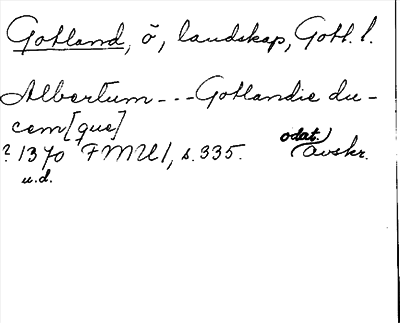 Gotland, ö, landskap, Gotl. l.
Albertum --- Gotlandie du-
cem[que]
? 1370 FMU 1, s. 335. odat. avskr.
u.d.